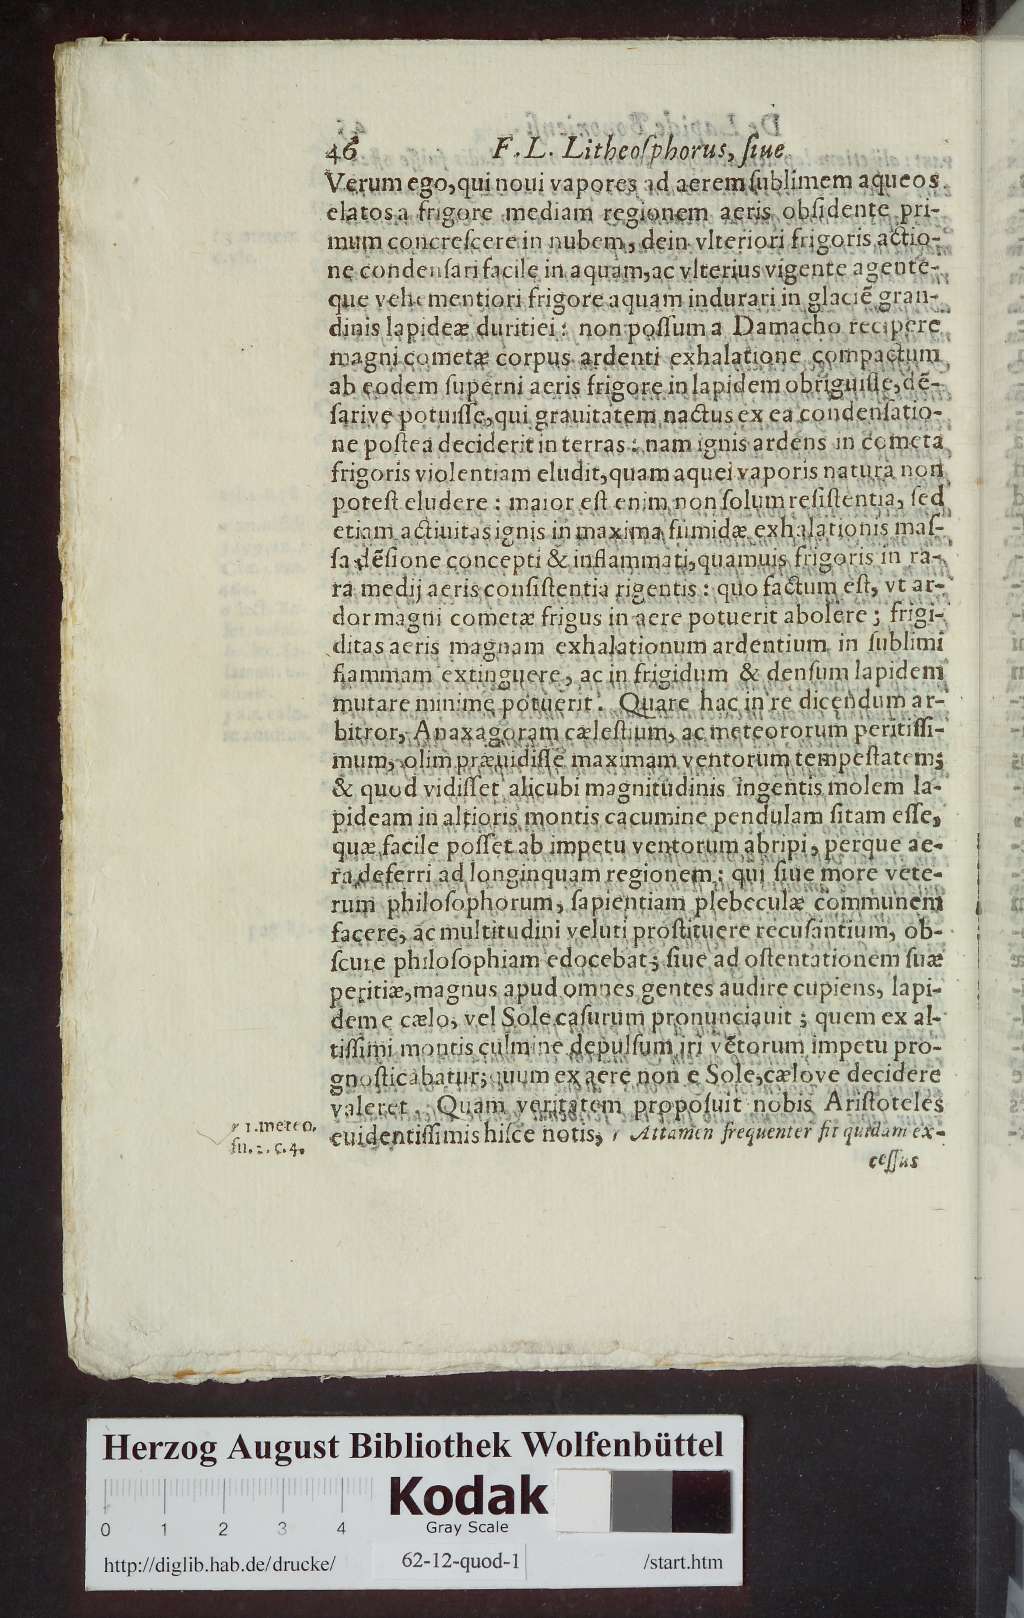 46 F. L. Litheoſphorus, ſiue
Verum ego, qui noui vapores ad aerem ſublimem aqueos
elatos a frigore mediam regionem aeris obſidente pri-
mum concreſcere in nubem, dein vlteriori frigoris actio-
ne condenſari facile in aquam, ac vlterius vigente agente-
que vehementiori frigore aquam indurari in glaciē gran-
dinis lapideæ duritiei: non poſſum a Damacho recipere
magni cometæ corpus ardenti exhalatione compactum
ab eodem ſuperni aeris frigore in lapidem obriguiſſe, dē-
ſarive potuiſſe, qui grauitatem nactus ex ea condenſatio-
ne poſtea deciderit in terras: nam ignis ardens in cometa
frigoris violentiam eludit, quam aquei vaporis natura non
poteſt eludere: maior eſt enim non ſolum reſiſtentia, ſed
etiam actiuitas ignis in maxima fumidæ exhalationis maſ-
ſa dēſione concepti & inflammati, quamuis frigoris in ra-
ra medij aeris conſiſtentia rigentis: quo factum eſt, vt ar-
dor magni cometæ frigus in aere potuerit abolere; frigi-
ditas aeris magnam exhalationum ardentium in ſublimi
flammam extinguere, ac in frigidum & denſum lapidem
mutare minime potuerit. Quare hac in re dicendum ar-
bitror, Anaxagoram cæleſtium, ac meteororum peritiſſi-
mum, olim præuidiſſe maximam ventorum tempeſtatem;
& quod vidiſſet alicubi magnitudinis ingentis molem la-
pideam in altioris montis cacumine pendulam ſitam eſſe,
quæ facile poſſet ab impetu ventorum abripi, perque ae-
ra deferri ad longinquam regionem: qui ſiue more vete-
rum philoſophorum, ſapientiam plebeculæ communem
facere, ac multitudini veluti proſtituere recuſantium, ob-
ſcure philoſophiam edocebat; ſiue ad oſtentationem ſuæ
peritiæ, magnus apud omnes gentes audire cupiens, lapi-
dem e cælo, vel Sole caſurum pronunciauit; quem ex al-
tiſſimi montis culmine depulſum iri vētorum impetu pro-
gnoſticabatur; quum ex aere non e Sole, cælove decidere
valeret. Quam veritatem propoſuit nobis Ariſtoteles
euidentiſſimis hiſce notis, r Attamen frequenter fit quidam ex-
r 1. meteo.
ſu. 2. c. 4.
ceſſus
Herzog August Bibliothek Wolfenbüttel
0 1 2 3 4
Kodak
Gray Scale
http://diglib.hab.de/drucke/ 62-12-quod-1 /start.htm